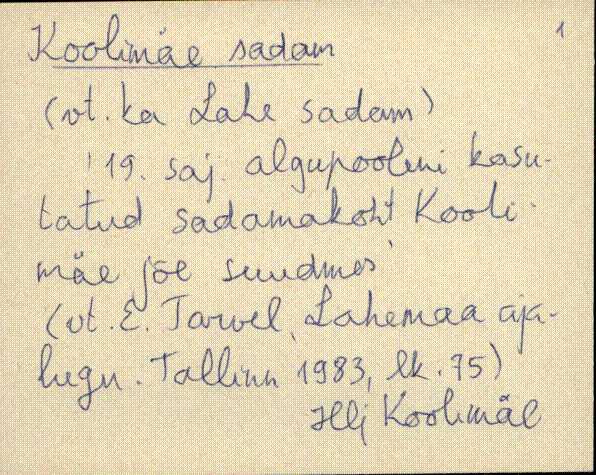 1
Koolimäe sadam
(vt. ka Lahe sadam)
'19. saj. algupooleni kasu-
tatud sadamakoht Kooli-
mäe jõe suudmes'
(vt. E. Tarvel, Lahemaa aja-
lugu. Tallinn 1983, lk. 75)
Hlj Koolimäe